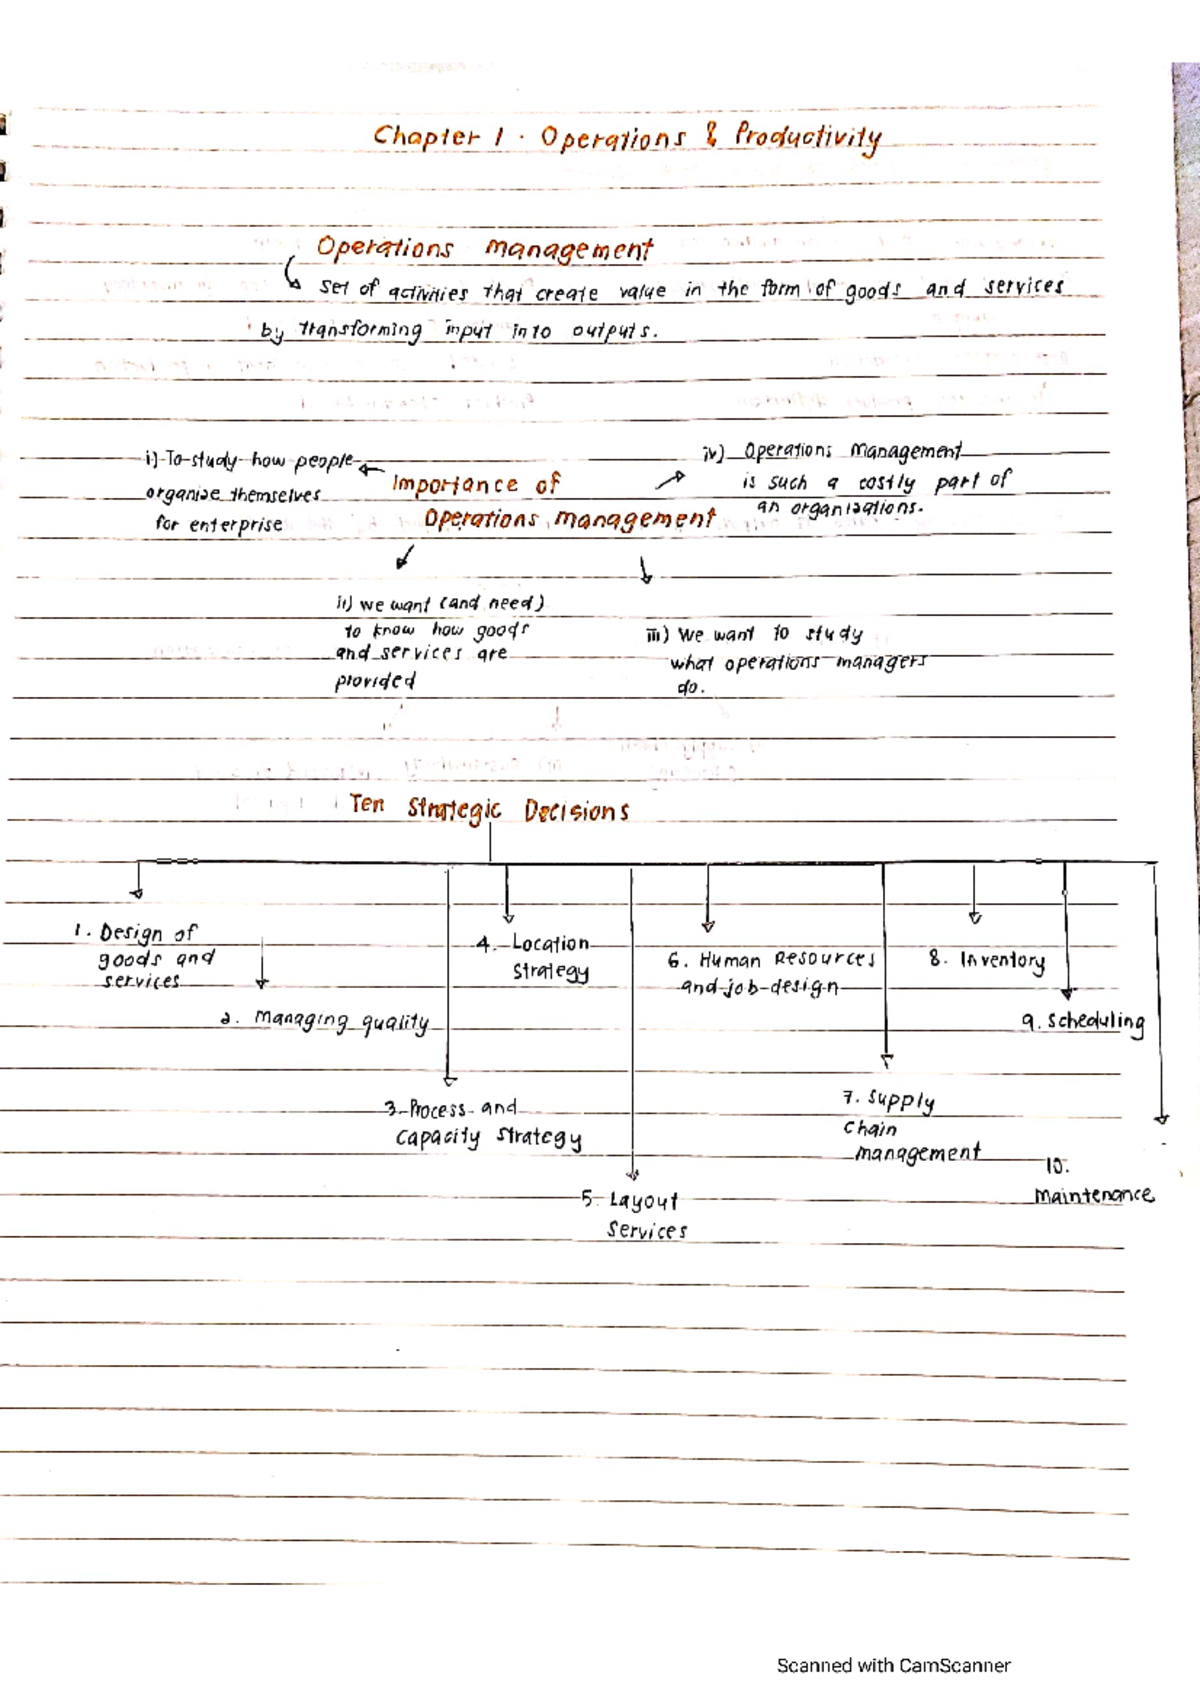 Chapter 1 · Operations & Productivity
Operations management
set of activities that create value in the form of goods and services
by transforming input into outputs.
i) To study how people
organise themselves
for enterprise
Importance of
Operations management
iv) Operations management
is such a costly part of
an organisations.
ii) we want (and need)
to know how goods
and services are
provided
iii) We want to study
what operations managers
do.
Ten Strategic Decisions
1. Design of
goods and
services
2. Managing quality
3. Process and
capacity strategy
4. Location
strategy
5. Layout
services
6. Human Resources
and job design
7. supply
chain
management
8. Inventory
9. scheduling
10.
maintenance
Scanned with CamScanner